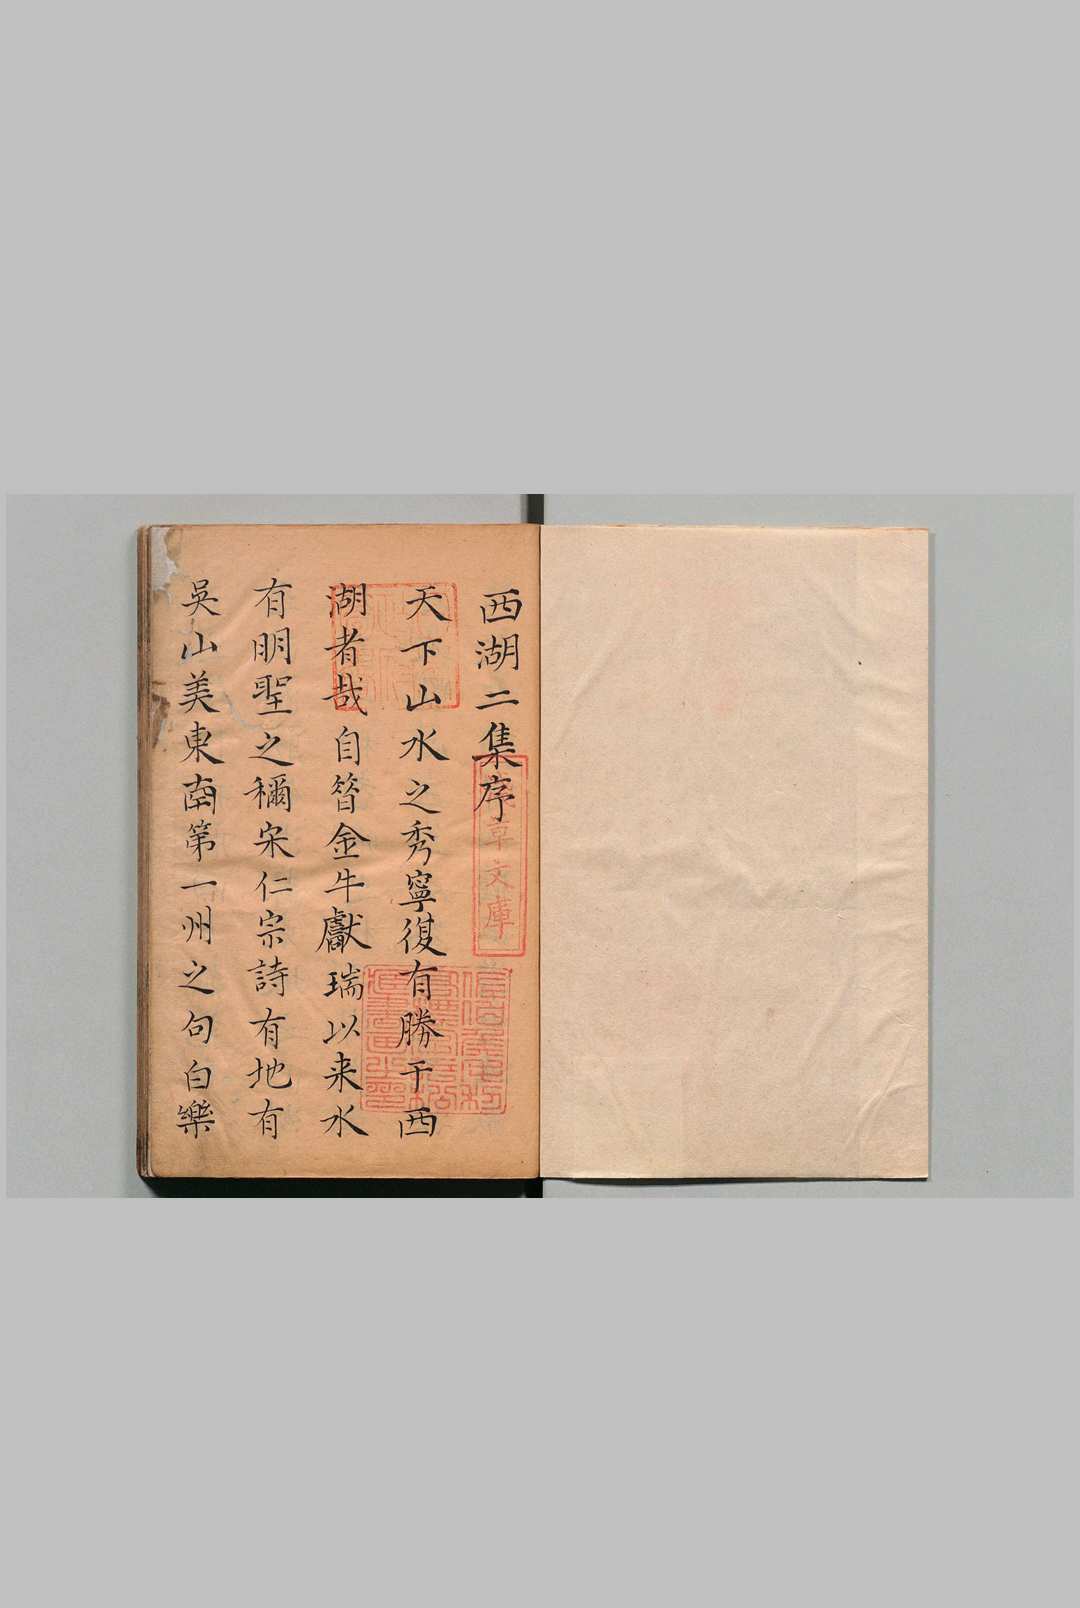 西湖二集序
天下山水之秀寧復有勝于西
湖者哉自昝金牛獻瑞以来水
有明聖之稱宋仁宗詩有地有
吳山美東南第一州之句白樂
草文庫